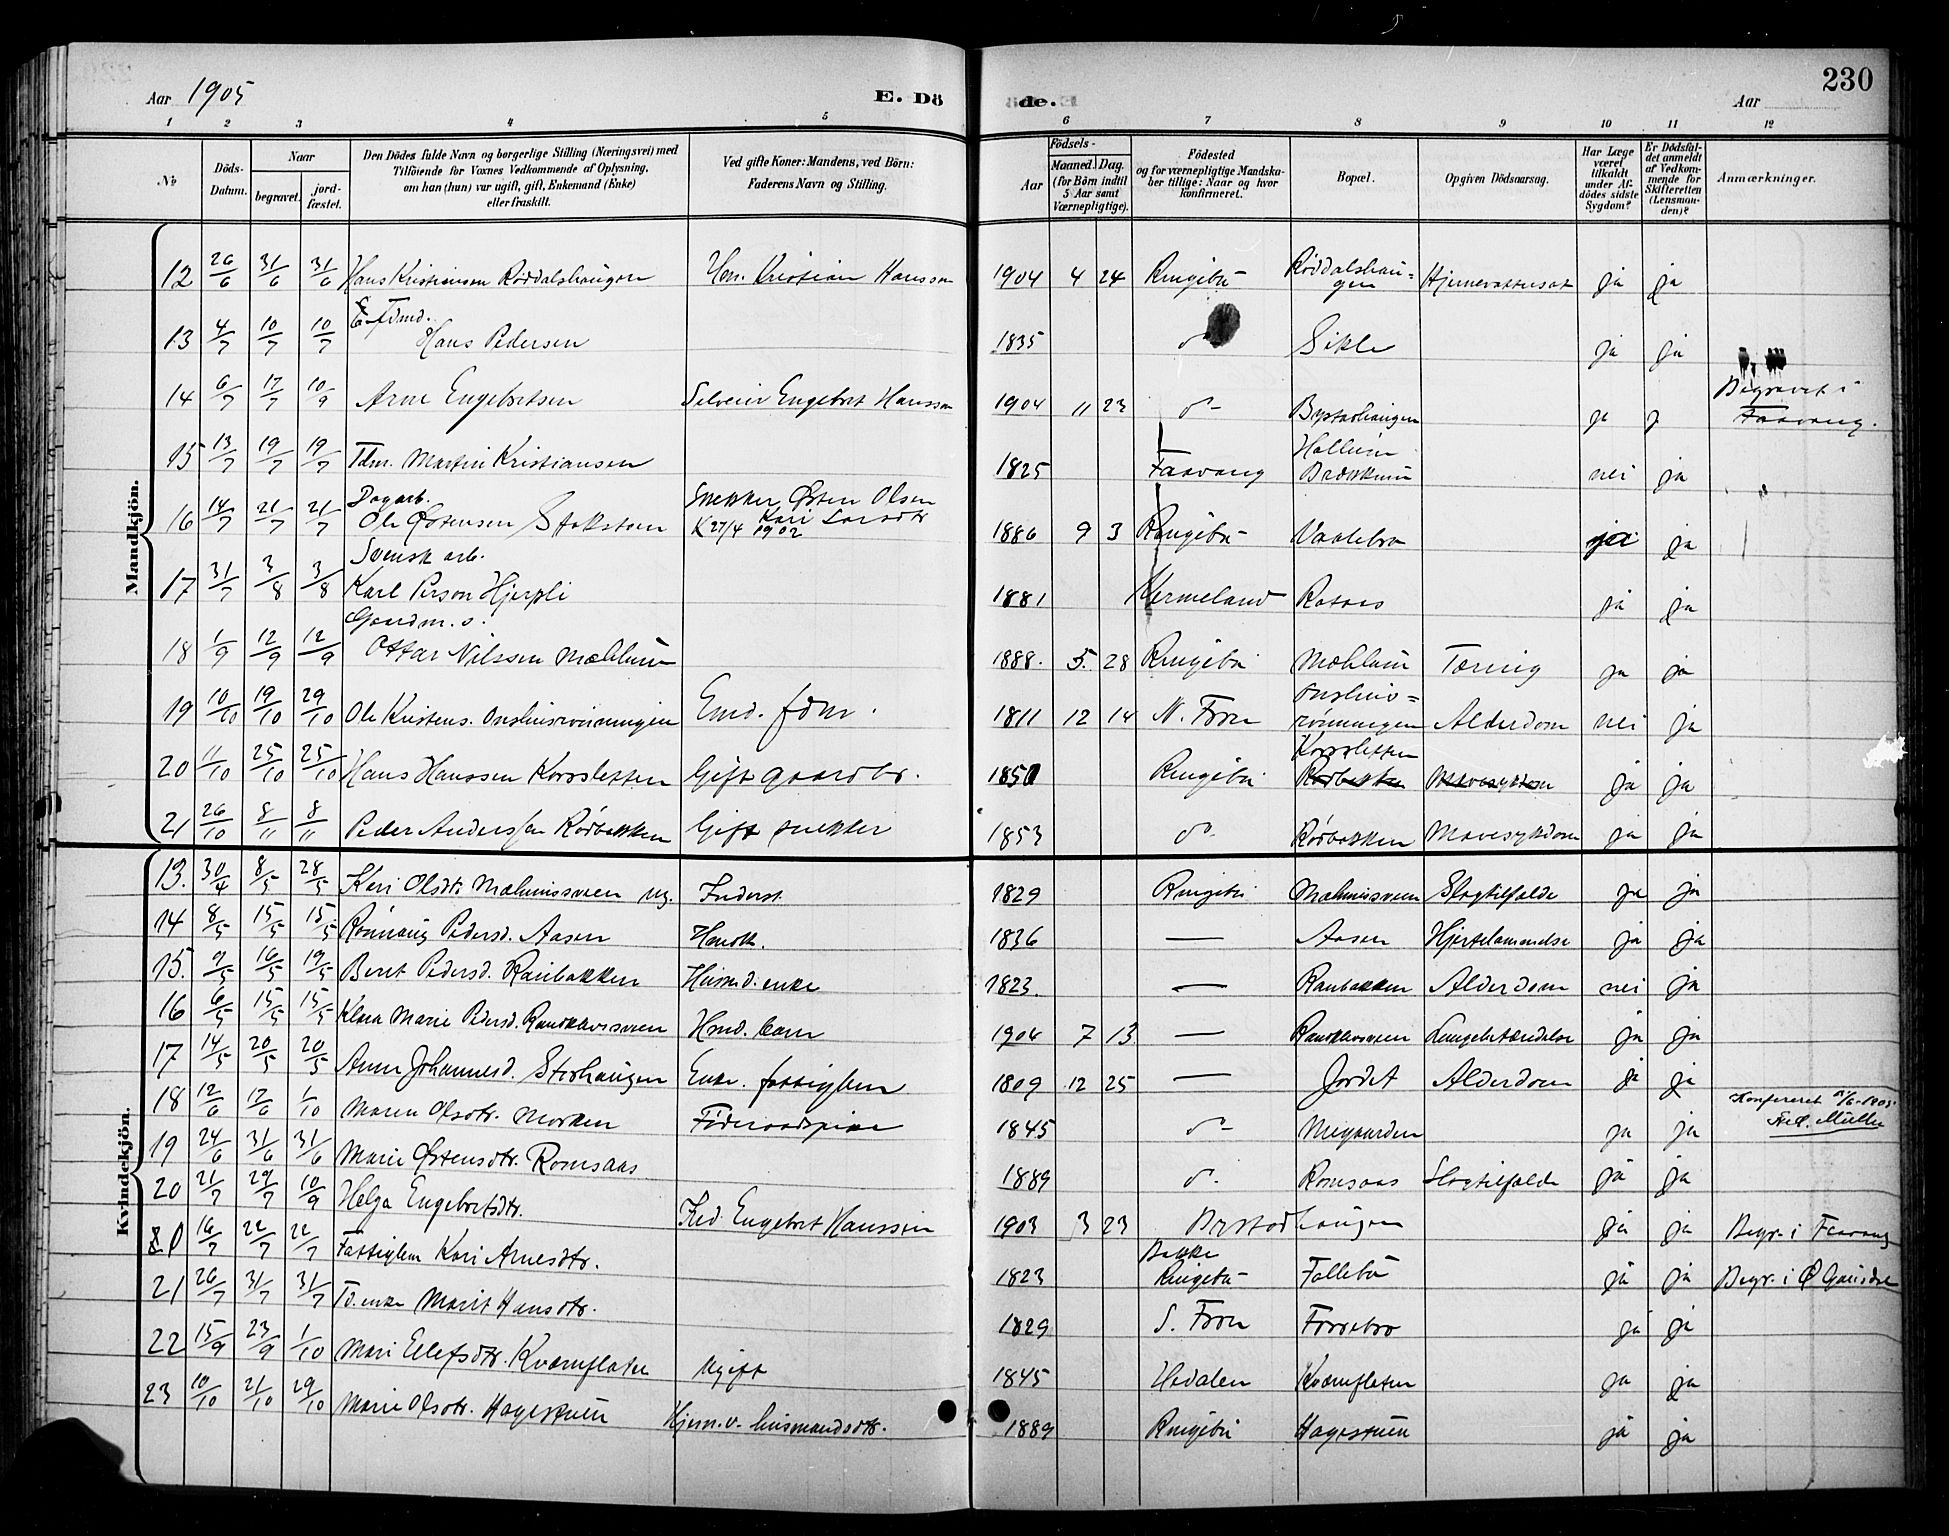 230
Aar 1905
E. Dö
de.
Aar
1 2 3 4 5 6 7 8 9 10 11 12
No
Döds-Datum.
Naar
begravet.
jord-fæstet.
Den Dödes fulde Navn og borgerlige Stilling (Næringsvei) med
Tilföiende for Voxnes Vedkommende af Oplysning,
om han (hun) var ugift, gift, Enkemand (Enke)
eller fraskilt.
Ved gifte Koner: Mandens, ved Börn:
Faderens Navn og Stilling.
Födsels-
Aar
Maaned.
Dag.
(for Börn indtil
5 Aar samt
Værnepligtige).
Födested
og for værnepligtige Mandska-
ber tillige: Naar og hvor
konfirmeret.
Bopæl.
Opgiven Dödsaarsag.
Har Læge
været
tilkaldt
under Af-
dödes sidste
Sygdom?
Er Dödsfal-
det anmeldt
af Vedkom-
mende for
Skifteretten
(Lensman-
den)?
Anmærkninger.
Mandkjön.
12 26/6 31/6 31/6 Hans Kristiansen Röddalshaugen Hm. Kristian Hanssen 1904 4 24 Ringebu Röddalshau=gen ja ja
13 4/7 10/7 10/7 Hans Pedersen 1835 Sikle ja ja
14 6/7 17/7 10/9 Arne Engebretsen Engebret Hanssen 1904 11 23 Bystadhaugen ja j Begravet i Faavang.
15 13/7 19/7 19/7 Martin Kristiansen 1825 Faavang nei ja
16 14/7 21/7 21/7 Dagarb. Ole Østensen Stokstuen Snekker Østen Olsen Kari Larsdtr K 27/4 1902 1886 9 3 Ringebu Vaalebro ja ja
17 31/7 3/8 3/8 Svensk arb. Karl Person Hjerpli 1881 Vermeland ja ja
18 1/9 12/9 12/9 Gaardm. s. Ottar Nilssen Mæhlum 1888. 5. 28 Ringebu Mæhlum Tæring ja ja
19 10/10 19/10 29/10 Ole Kristens. Emd. fdm. 1811 12 14 N. Fron Alderdom nei ja
20 11/10 25/10 25/10 Hans Hanssen Korsletten Gift gaardbr. 1850 Ringebu Korsletten ja ja
21 26/10 8/11 8/11 Peder Anderssen Rödbakken Gift snekker 1853 Rödbakken Mavesygdom ja ja
Kvindekjön.
13. 30/4 8/5 28/5 Kari Olsdtr. ug. Inderst 1829 Ringebu Slagtilfælde ja ja
14 8/5 15/5 15/5 Rönnaug Pedersd. Aasen 1836 — Aasen Hjertelammelse ja ja
15. 9/5 16/5 19/5 Berit Pedersd. Raubakken Husmd. enke 1823. — Raubakken Alderdom nei ja
16 6/5 15/5 15/5 Klara Marie Pedersd. Hmd. barn 1904 7 13 — Lungebetændelse ja ja
17 14/5 20/5 20/5 Anne Johannesd. Storhaugen Enke. fattiglem 1809 12 25 — Jordet Alderdom ja ja
18 12/6 17/6 1/10 Maren Olsdtr. Morken 1845 Megaarden ja ja Konfereret
19 24/6 31/6 31/6 Marie Østensdtr. Romsaas 1889 Romsaas Slagtilfælde ja ja
20 21/7 29/7 10/9 Helga Engebretsdtr. Engebret Hanssen 1903 3 23 Bystadhaugen ja ja Begr. i Faavang
16/7 22/7 22/7 Fattiglem Kari Arnesdtr. 1823 Bakke Ringebu Follebu ja ja Begr. i Ø Gausdal
21 26/7 31/7 31/7 Fd. enke Marit Hansdtr. 1829 S. Fron ja ja
22 15/9 23/9 1/10 Mari Elefsdtr. Kværnflaten Ugift 1845 Hedalen Kværnflaten ja ja
23 10/10 21/10 29/10 Marie Olsdtr. Hagestuen Hjem. v. husmandsdtr. 1889 Ringebu Hagestuen ja ja